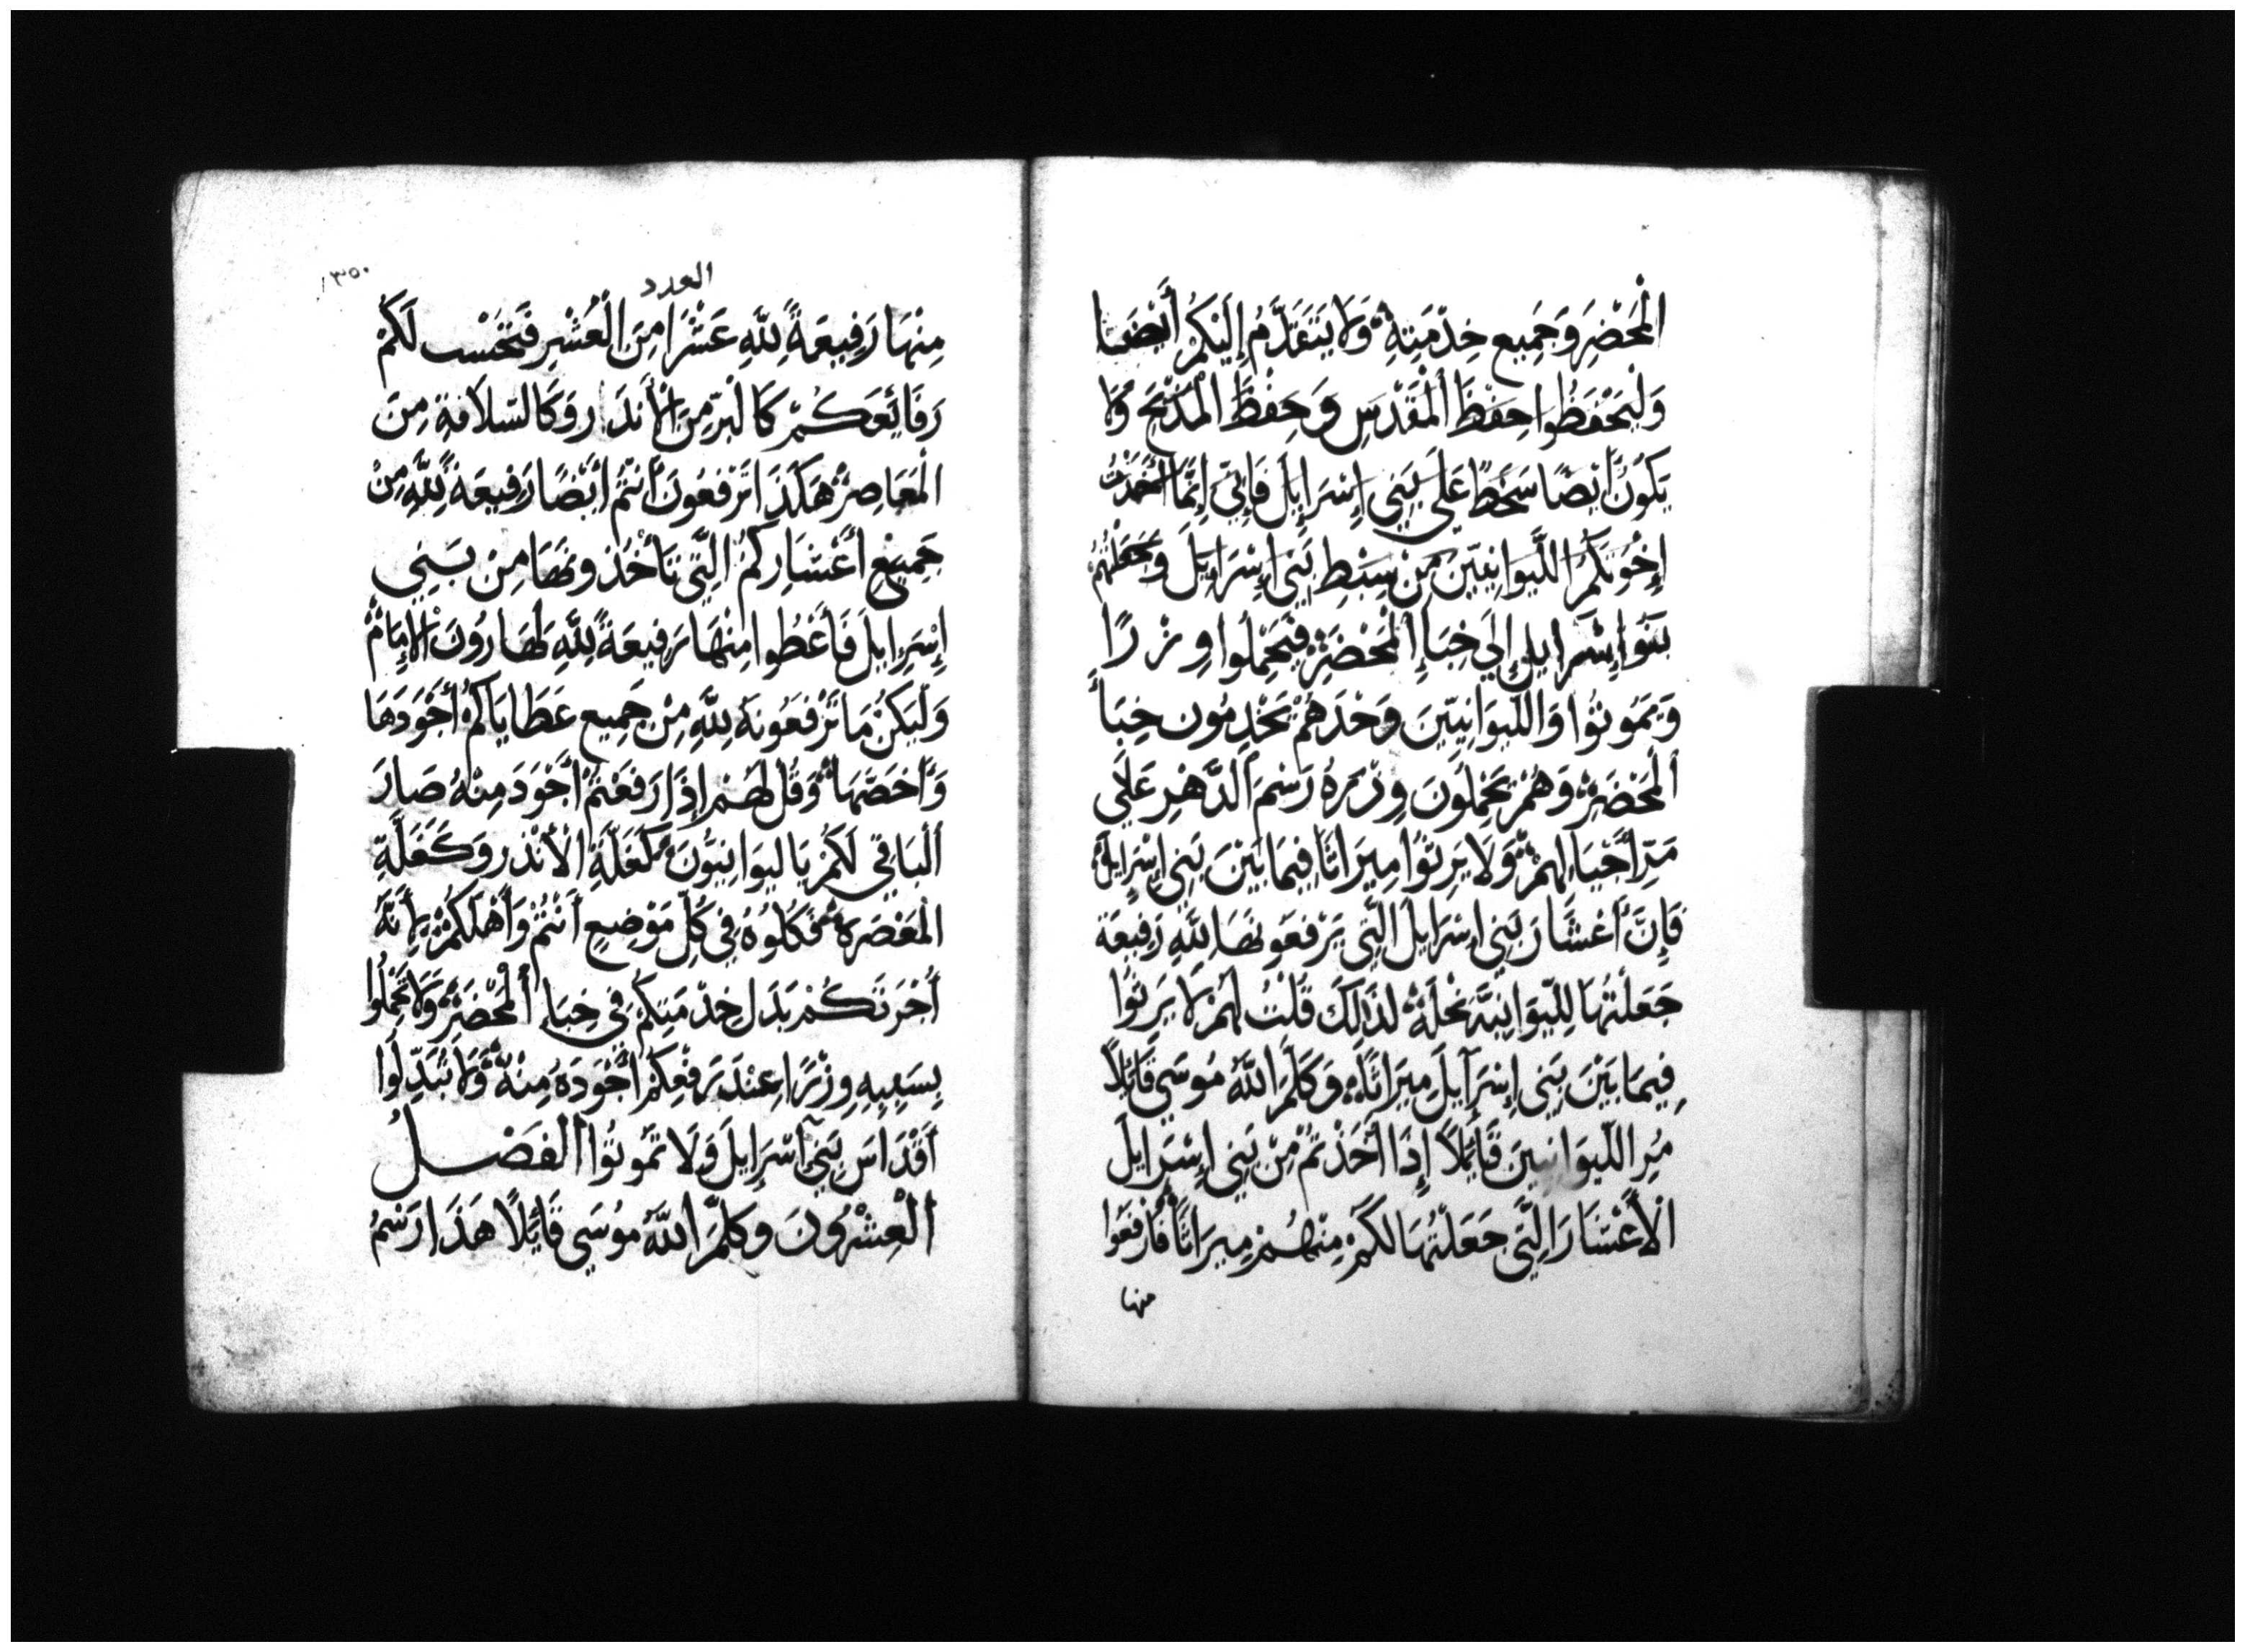 الْمَحْضَرِ وَجَمِيع خِدْمَتِهِ وَلَا يَتَقَدَّمُ إِلَيْكُمْ أَيْضًا
وَلْيَحْفَظُوا حِفْظَ الْمَقْدَسِ وَحِفْظَ الْمَذْبَحِ وَلَا
يَكُونُ أَيْضًا سَخَطًا عَلَى بَنِي إِسْرَايِلَ فَإِنِّي إِنَّمَا أَخَذْتُ
إِخْوَتَكُمُ اللِّيوَانِيّينَ مِنْ سِبْطِ بَنِي إِسْرَايِلَ وَجَعَلْتُهُمْ
بَنُوا إِسْرَايِلَ إِلَى خِبَاءِ الْمَحْضَرِ فَيَحْمِلُوا وِزْرًا
وَيَمَوتُوا وَاللِّيوَانِيّينَ وَحْدَهُمْ يَخْدِمُون خِبَاءَ
الْمَحْضَرِ وَهُمْ يَحْمِلُونَ وِزْرَهُ رَسْمَ الدَّهْرِ عَلَى
مَرِّ أَحْيَالِهِمْ وَلَا يَرِثُوا مِيرَاثًا فِيمَا بَيْنَ بَنِي إِسْرَايِلَ
فَإِنَّ أَعْشَارَ بَنِي إِسْرَايِلَ الَّتِي يَرْفَعُونَهَا لِلَّهِ رَفِيعَة
جَعَلْتُهَا لِلِّيوَانِيَّةِ نِحْلَةً لِذَلِكَ قُلْتُ لَهُمْ لَا يَرِثُوا
فِيمَا بَيْنَ بَنِي إِسْرَآيِلَ مِيرَاثًا وَكَلَّمَ اللَّهُ مُوسَى قَائِلًا
مُرِ اللِّيوَانِيينَ قَائِلًا إِذَا أَخَذْتُمْ مِنْ بَنِي إِسْرَايِلَ
الْأَعْشَارَ الَّتِي جَعَلْتُهَا لَكُمْ مِنْهُمْ مِيرَاثًا فَارْفَعُوا
منها
١٣٥٠
العدد
مِنْهَا رَفِيعَةً لِلَّهِ عَشْرًا مِنَ الْعُشْرِ فَتَحْسِب لَكُمْ
رَفَائِعَكُمْ كَالْبُرِّ مِنَ الْأَنْدَارِ وَكَالسّلَافَةِ مِنَ
الْمَعَاصِرِ هَكَذَا تَرْفَعُونَ أَنْتُمْ أَيْضًا رَفِيعَة لِلَّهِ مِنْ
جَمِيعِ أَعْشَارِكُمُ الَّتِي تَأْخُذُونَهَا مِنْ بَنِي
إِسْرِايِلَ فَأَعْطُوا مِنْهَا رَفِيعَةً لِلَّهِ لِهَارُونَ الْإِمَامْ
وَلْيَكُنْ مَا تَرْفَعُونَهُ لِلَّهِ مِنْ جَمِيعِ عَطَايَاكُمْ أَجْوَدَهَا
وَأَخَصّهَا وَقُل لَهُمْ إِذَا رَفَعْتُمْ أَجْوَدَ مِنْهُ صَارَ
الْبَاقِي لَكُمْ يَا لِيوَانِيُّونَ كَغَلَّةِ الْأَنْدَرِ وَكَغَلَّةِ
الْمَعْصَرَةِ فَكُلُوُهُ فِي كُلِّ مَوْضِعٍ أَنْتُمْ وَأَهْلُكُمْ لِأَنَّهُ
أُجْرَتُكُمْ بَدَلَ خِدْمَتِكُمْ فِي خِبَاءِ الْمَحْضَرِ وَلَا تَحْمِلُوا
بِسَبَبِهِ وِزْرًا عِنْدَ رَفْعِكُمْ أَجْوَدَهُ مِنْهُ وَلَا تُبَدِّلُوا
أَقْدَاسَ بَنِي آسْرَايِلَ وَلَا تَمُوتُوا الْفَصْلُ
الْعِشْرُونَ وَكَلَّمَ اللَّهُ مُوُسَى قَائِلًا هَذَا رَسْمُ